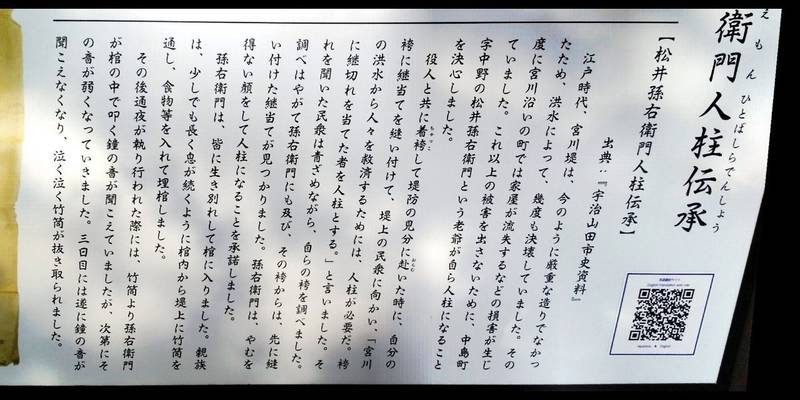 衛門人柱伝承
えもんひとばしらでんしょう
【松井孫右衛門人柱伝承】
出典：『宇治山田市史資料』
江戸時代、宮川堤は、今のように厳重な造りでなかっ
たため、洪水によって、幾度も決壊していました。その
度に宮川沿いの町では家屋が流失するなどの損害が生じ
ていました。これ以上の被害を出さないために、中島町
字中野の松井孫右衛門という老爺が自ら人柱になること
を決心しました。
役人と共に着袴して堤防の見分に赴いた時に、自分の
袴に継当てを縫い付けて、堤上の民衆に向かい、「宮川
の洪水から人々を救済するためには、人柱が必要だ。袴
に継切れを当てた者を人柱とする。」と言いました。そ
れを聞いた民衆は青ざめながら、自らの袴を調べました。
調べはやがて孫右衛門にも及び、その袴からは、先に縫
い付けた継当てが見つかりました。孫右衛門は、やむを
得ない顔をして人柱になることを承諾しました。
孫右衛門は、皆に生き別れして棺に入りました。親族
は、少しでも長く息が続くように棺内から堤上に竹筒を
通し、食物等を入れて埋棺しました。
その後通夜が執り行われた際には、竹筒より孫右衛門
が棺の中で叩く鐘の音が聞こえていましたが、次第にそ
の音が弱くなっていきました。三日目には遂に鐘の音が
聞こえなくなり、泣く泣く竹筒が抜き取られました。